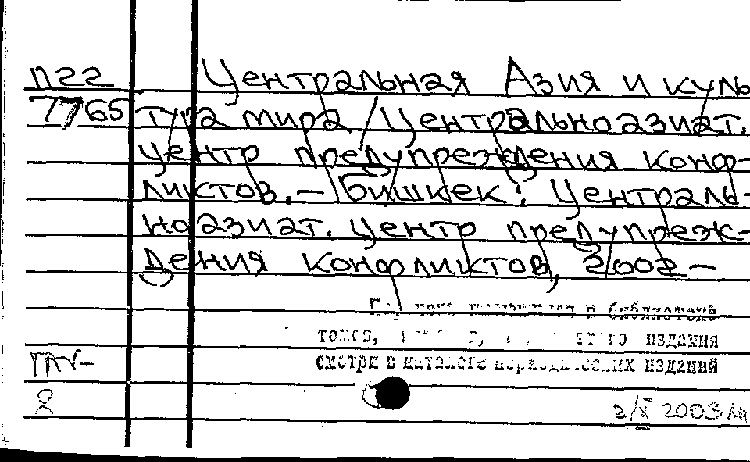 П22 Центральная Азия и куль
7765 тура мира / Центральноазиат.
центр предупреждения конф-
ликтов. – Бишкек: Централь-
ноазиат. центр предупреж-
дения конфликтов, 2002 –
в библиотеке
томов, этого издания
смотри в каталоге периодических изданий
8
2/X 2003